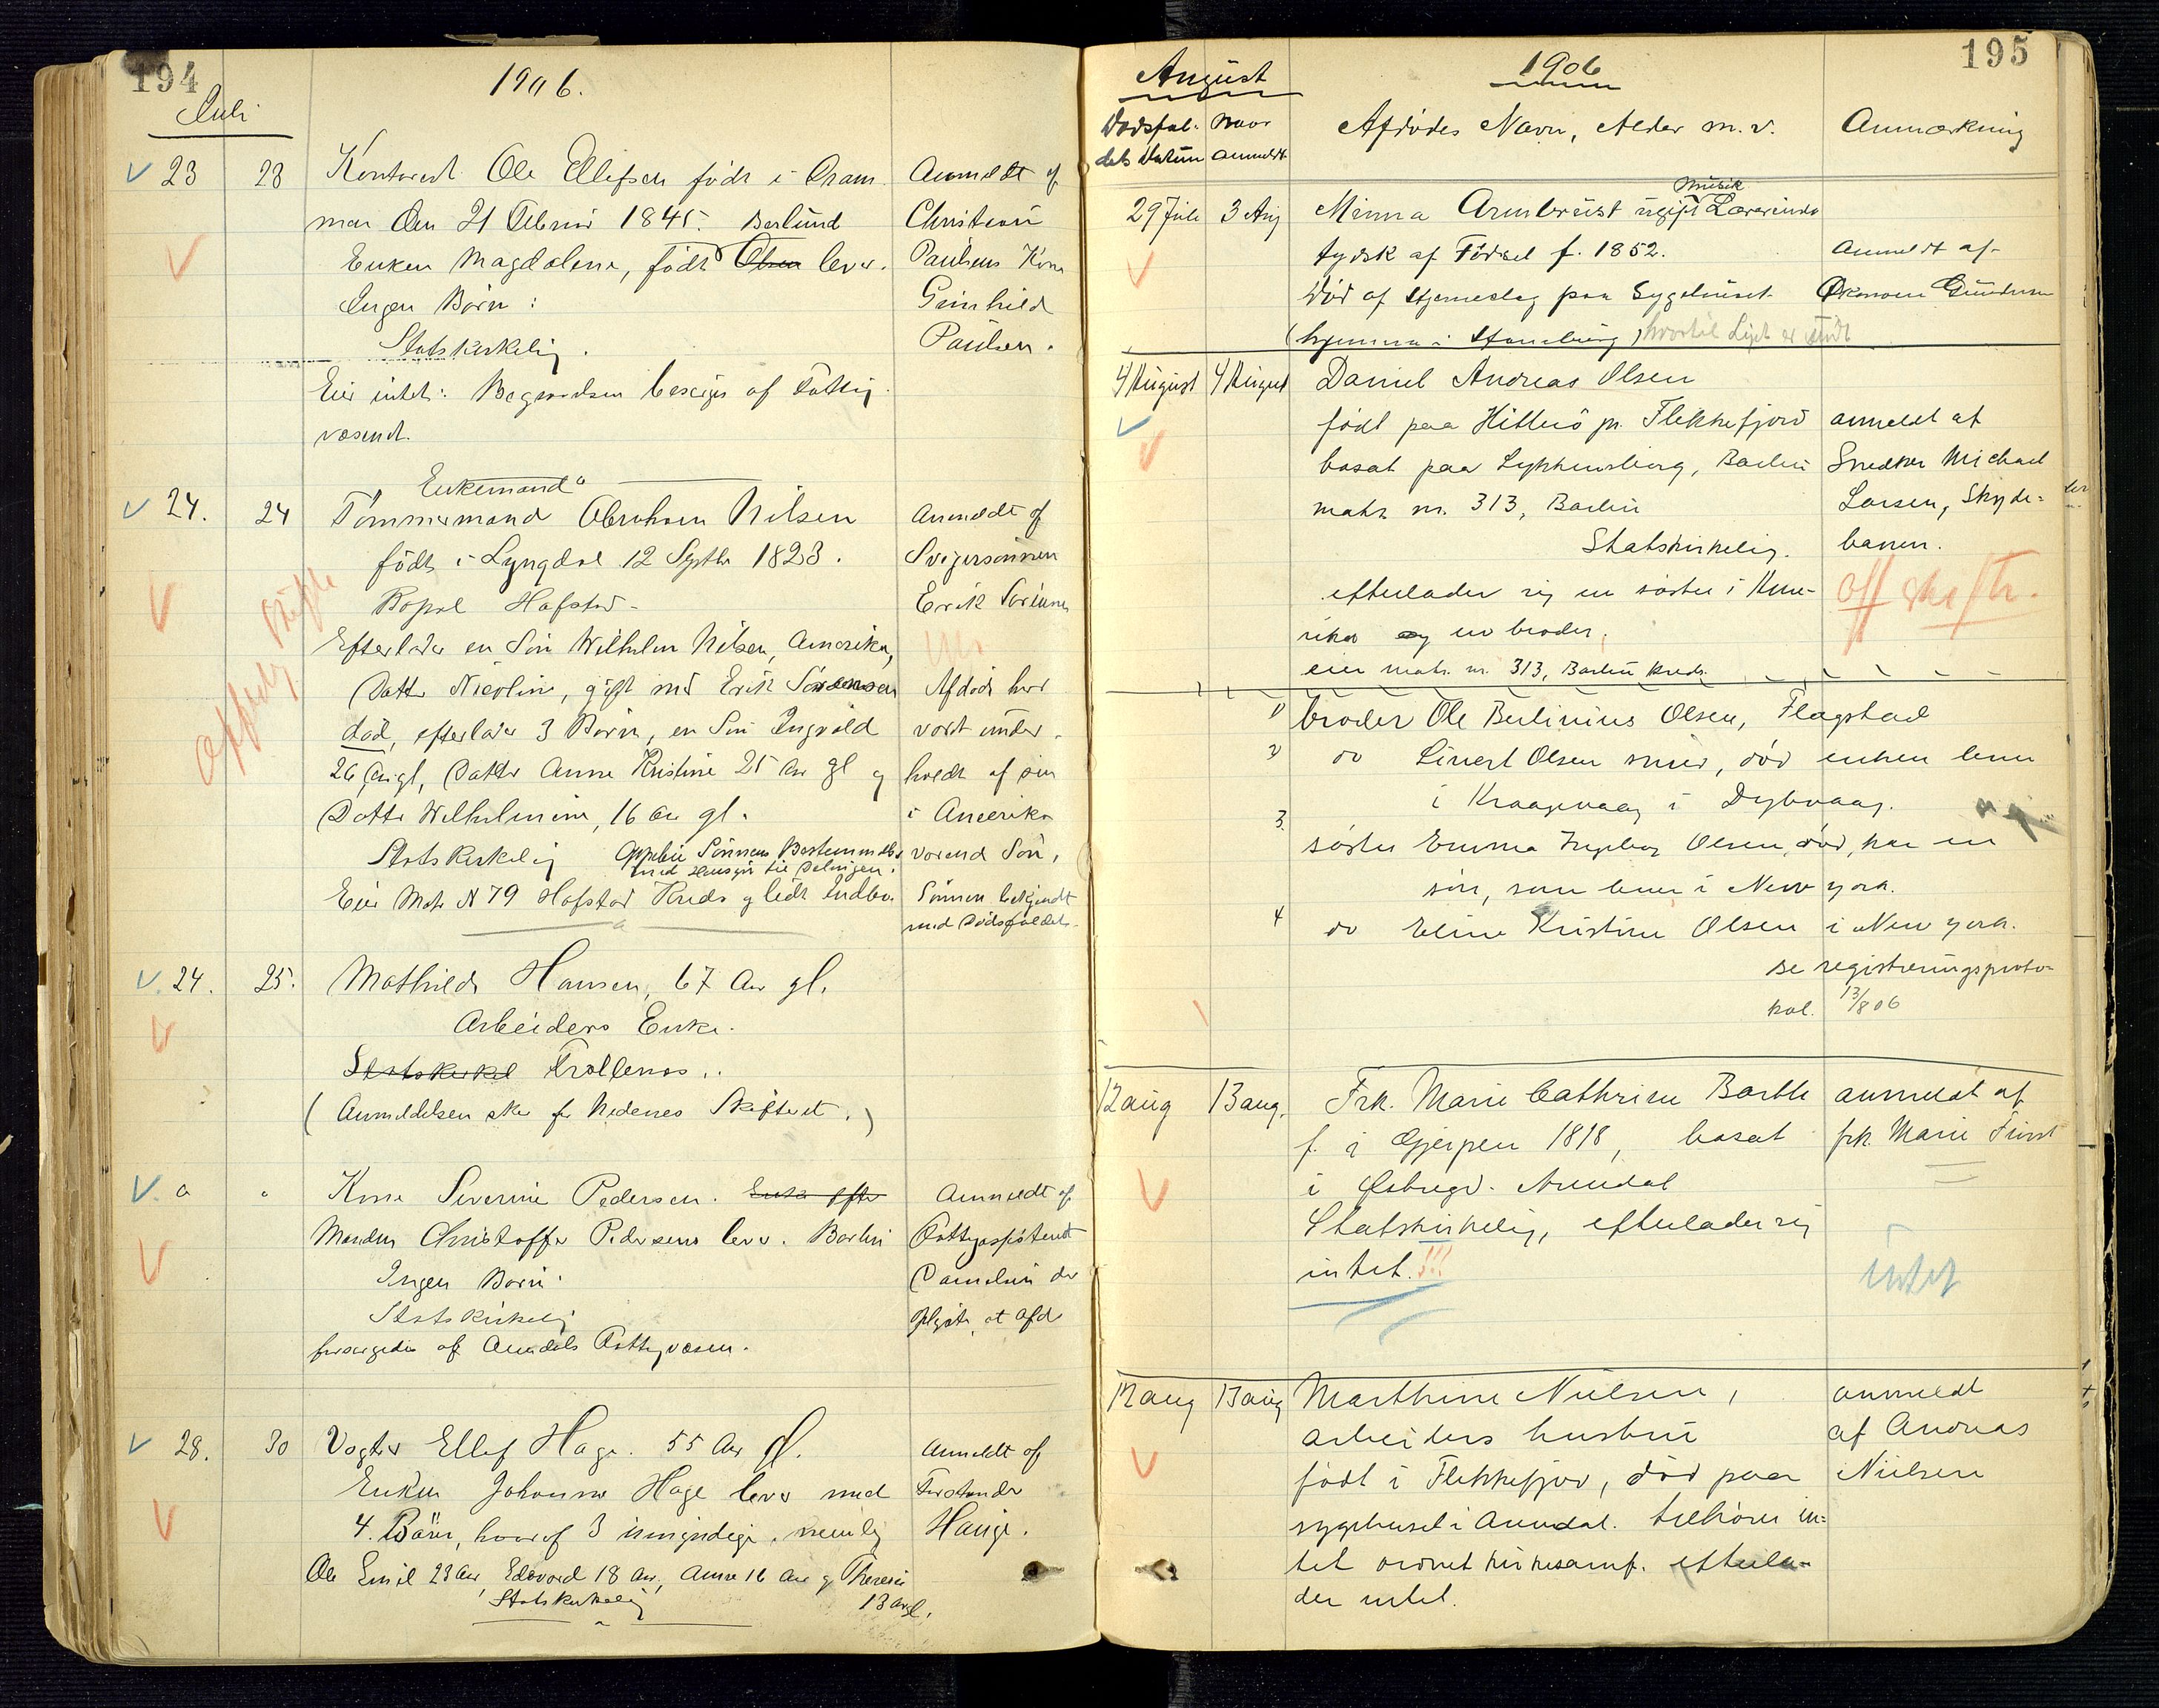 194
1906.
Juli
23 23 Kontorist Ole Ellefsen født i Dram
men den 21 Februar 1845. Barbund
Enken Magdalene, født Olsen lever.
Ingen Børn:
Statskirkelig.
Eier intet: Begravelsen besørges af Fattig
væsenet.
Anmeldt af
Christian
Paulsens Kone
Gunhild
Paulsen.
Enkemand
24. 24 Tømmermand Abraham Nilsen
født i Lyngdal 12 Septbr 1823.
Bopæl Hafstad
Efterlader en Søn Wilhelm Nilsen, Amerika,
Datter Nicoline, gift med Erik Sørensen
død, efterlader 3 Børn, en Søn Ingvald
26 Aar gl, Datter Anna Kristine 25 Aar gl og
Datter Wilhelmine, 16 Aar gl.
Statskirkelig
Sønnens Bestemmelse
med Hensyn til Delingen.
Eier Matr N 79 Hafstad Kreds og lidt Indbo.
Anmeldt af
Svigersønnen
Erik Sørensen
Afdøde har
vært under
holdt af sin
i Amerika
værende Søn,
Sønnen bekjendt
med Dødsfaldet.
24. 25. Mathilde Hansen, 67 Aar gl.
Arbeiders Enke.
Statskirkel Trollenæs..
(Anmeldelsen sker for Nedenes Skifteret.)
" " Kone Severine Pedersen. Enke efter
Manden Christoffer Pedersens lever. Barbu
Ingen Børn.
Statskirkelig
forsørgedes af Arendals Fattigvæsen.
Anmeldt af
Fattigassistent
Danielsen der
oplyste at afd
28. 30 Vogter Ellef Hage. 55 Aar gl.
Enken Johanne Hage lever med
4. Børn, hvoraf 3 umyndige, nemlig
Ole Emil 23 Aar, Edvard 18 Aar, Anna 16 Aar og Therese
13 Aar gl.
Statskirkelig
Anmeldt af
Forstander
Hauge.
195
August
1906
Dødsfal-
dets Datum
Naar
anmeldt
Afdødes Navn, Alder m.v.
Anmærkning
29 Juli 3 Aug Minna Armbrüst ugift Musik Lærerinde
tydsk af Fødsel f. 1852.
Død af Hjerneslag paa Sygehuset
(hjemme i Hamburg) hvortil Liget er sendt
Anmeldt af
Økonom Gundersen
4 August 4 August Daniel Andreas Olsen
født paa Hitterö pr. Flekkefjord
bosat paa Lykkensborg, Barbu
matr. nr. 313, Barbu
Statskirkelig.
efterlader sig en søster i Ame-
rika og en broder.
eier matr. nr. 313, Barbu kreds.
anmeldt af
Snedker Michael
Larsen, Skyde-
banen.
off skiftn.
1) broder Ole Berlinius Olsen, Flagstad
2) do Linert Olsen smed, død enken lever
i Kraagevaag i Dybvaag.
3. søster Emma Ingeborg Olsen, død, har en
søn, som lever i New york.
4 do Eline Kristine Olsen i New york.
se registreringsproto-
kol. 13/8 06
12 aug 13 aug. Frk. Marie Cathrine Barth
f. i Gjerpen 1818, bosat
i Østregd. Arendal
Statskirkelig, efterlader sig
intet.!!!
anmeldt af
frk. Marie Fürst
intet
12 aug 13 aug Marthine Nielsen,
arbeiders hustru
født i Flekkefjord, død paa
sygehuset i Arendal. tilhører in-
tet ordnet kirkesamf. efterla-
der intet.
anmeldt
af Andreas
Nielsen